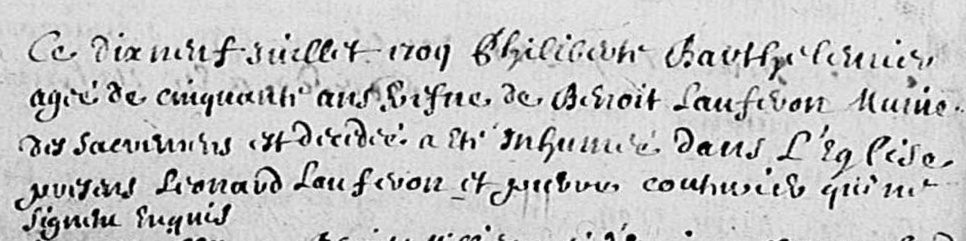 Ce dix neuf juillet 1709 Philiberte Barthelemier
agée de cinquante ans vefve de Benoit Lauferon Munie
des sacremens est decedée a eté Inhumée dans L'Eglise
presens Leonard Lauferon et pierre couturier qui ne
signent Enquis